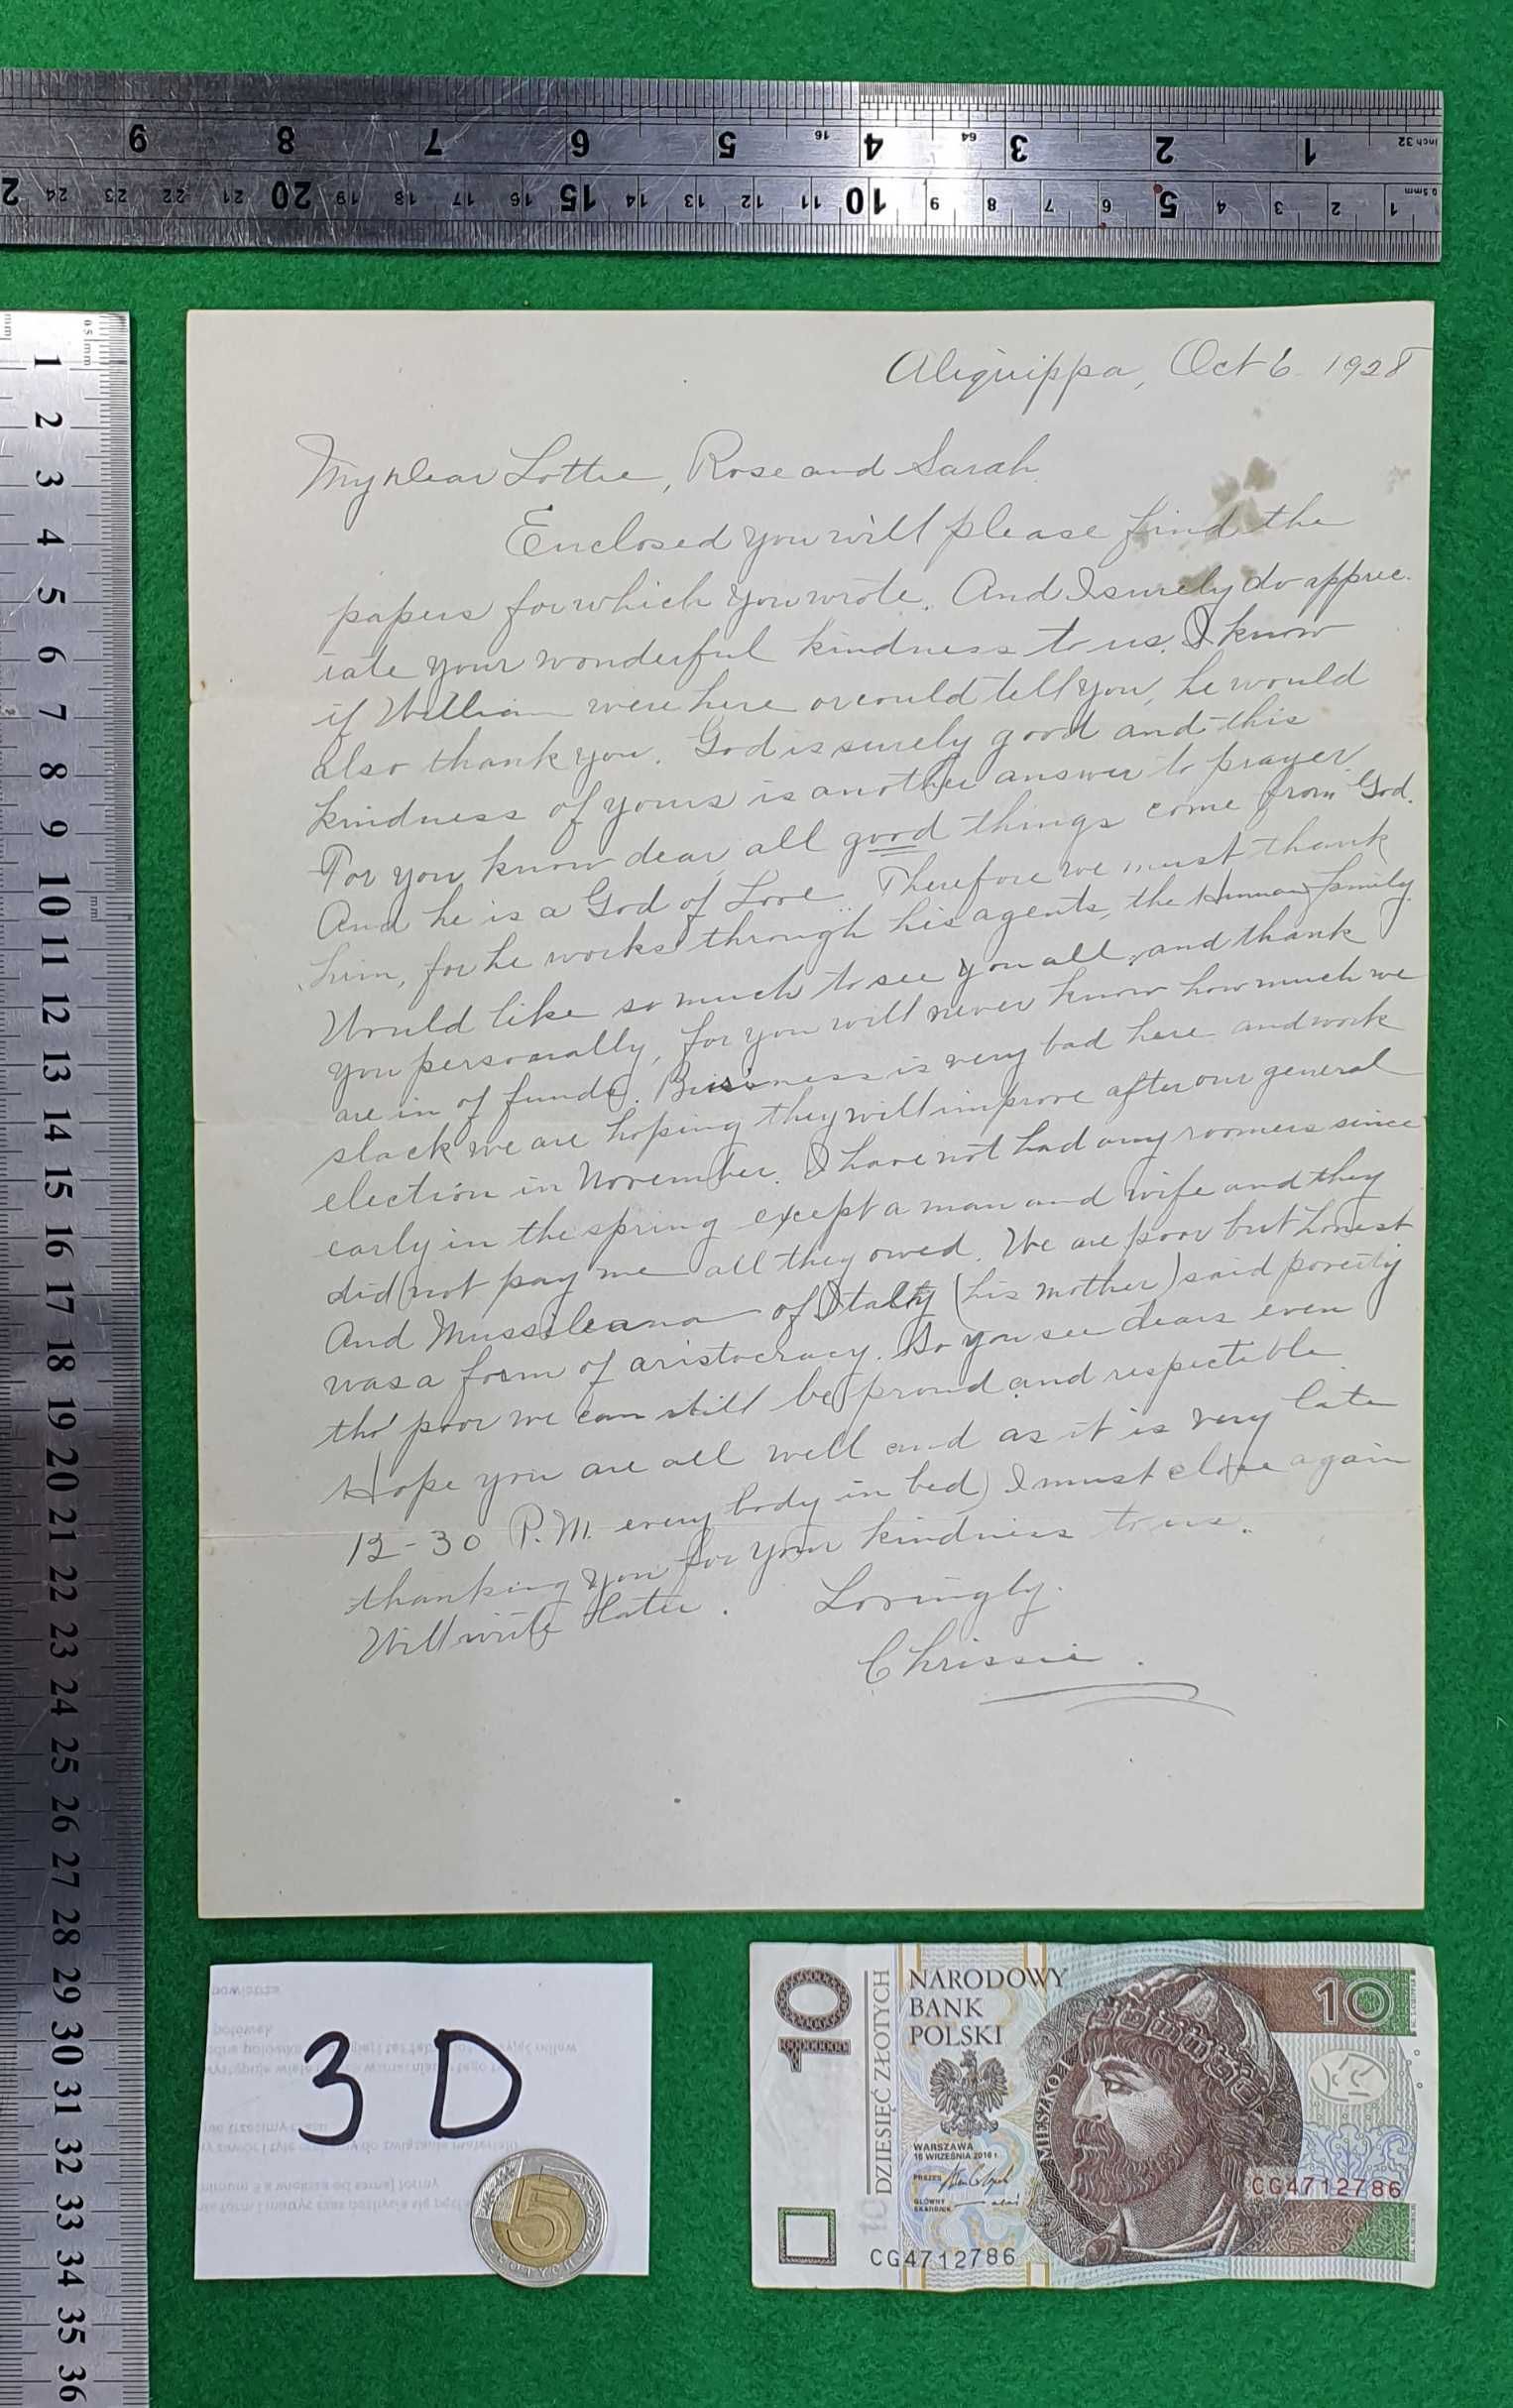 inch 32 1 2 3 64 4 16 5 6 7 8 9
0.5mm 1 2 3 4 5 6 7 8 9 10 11 12 13 14 15 16 17 18 19 20 21 22 23 24 2
mm 0.5 mm
1
2
3
4
5
6
7
8
9
10
mm
11
12
13
14
15
16
17
18
19
20
21
22
23
24
25
26
27
28
29
30
31
32
33
34
35
36
Aliquippa, Oct 6 1928
My Dear Lottie, Rose and Sarah.
Enclosed you will please find the
papers for which you wrote. And I surely do apprec-
iate your wonderful kindness to us. I know
if William were here or could tell you, he would
also thank you. God is surely good and this
kindness of yours is another answer to prayer.
For you know dear, all good things come from God.
And he is a God of Love. Therefore we must thank
him, for he works through his agents, the Human family.
Would like so much to see you all, and thank
you personally, for you will never know how much we
are in of funds. Bussiness is very bad here and work
slack we are hoping they will improve after our general
election in November. I have not had any roomers since
early in the spring except a man and wife and they
did not pay me all they owed. We are poor but honest
And Mussileana of Italy (his mother) said poverity
was a form of aristocracy. So you see dears even
tho' poor we can still be proud and respectible.
Hope you are all well and as it is very late
12-30 P.M. every body in bed) I must close again
thanking you for your kindness to us.
Will write later. Lovingly.
Chrissie.
3 D
5
10
DZIESIĘĆ ZŁOTYCH
NARODOWY
BANK
POLSKI
10
MIESZKO I
WARSZAWA
16 WRZEŚNIA 2016 r.
PREZES
GŁÓWNY
SKARBNIK
CG4712786
CG4712786